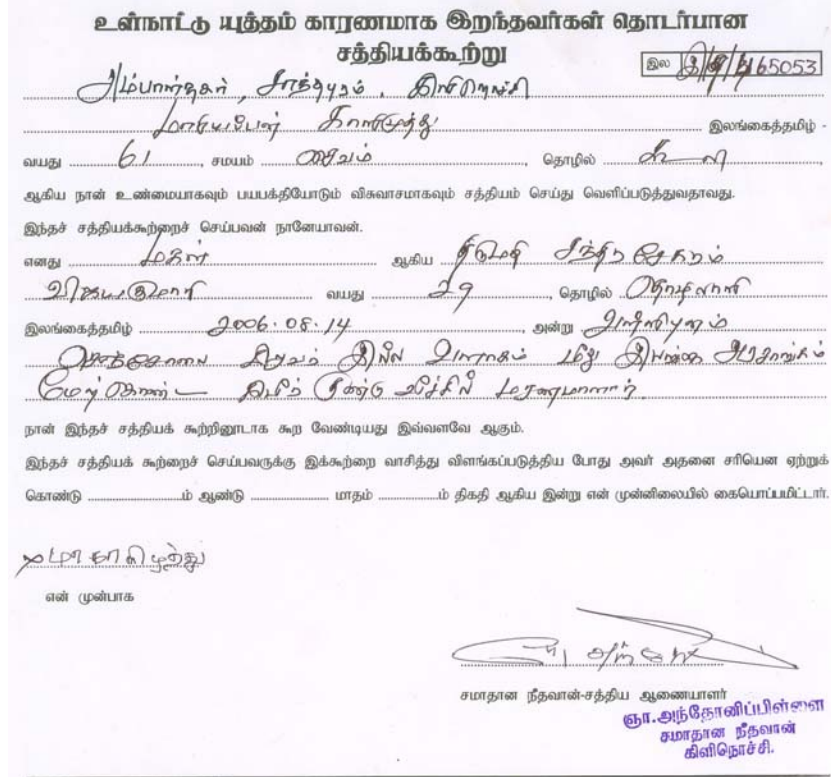 உள்நாட்டு யுத்தம் காரணமாக இறந்தவர்கள் தொடர்பான
சத்தியக்கூற்று
இல 65053
அம்பாள்நகர், சாந்தபுரம், கிளிநொச்சி
காளிமுத்து இலங்கைத்தமிழ் -
வயது 61, சமயம் சைவம், தொழில் கூலி,
ஆகிய நான் உண்மையாகவும் பயபக்தியோடும் விசுவாசமாகவும் சத்தியம் செய்து வெளிப்படுத்துவதாவது.
இந்தச் சத்தியக்கூற்றைச் செய்பவன் நானேயாவன்.
எனது மகள் ஆகிய திருமதி சந்திரசேகரம்
விஜயகுமாரி வயது 29, தொழில்
இலங்கைத்தமிழ் 2006.08.14, அன்று வள்ளிபுனம்
செஞ்சோலை சிறுவர் இல்ல வளாகம் மீது இலங்கை அரசாங்கம்
மேற்கொண்ட குண்டு வீச்சில் மரணமானார்.
நான் இந்தச் சத்தியக் கூற்றினூடாக கூற வேண்டியது இவ்வளவே ஆகும்.
இந்தச் சத்தியக் கூற்றைச் செய்பவருக்கு இக்கூற்றை வாசித்து விளங்கப்படுத்திய போது அவர் அதனை சரியென ஏற்றுக்
கொண்டு ....................ம் ஆண்டு .................... மாதம் ....................ம் திகதி ஆகிய இன்று என் முன்னிலையில் கையொப்பமிட்டார்.
என் முன்பாக
சமாதான நீதவான்-சத்திய ஆணையாளர்
ஞா.அந்தோனிப்பிள்ளை
சமாதான நீதவான்
கிளிநொச்சி.